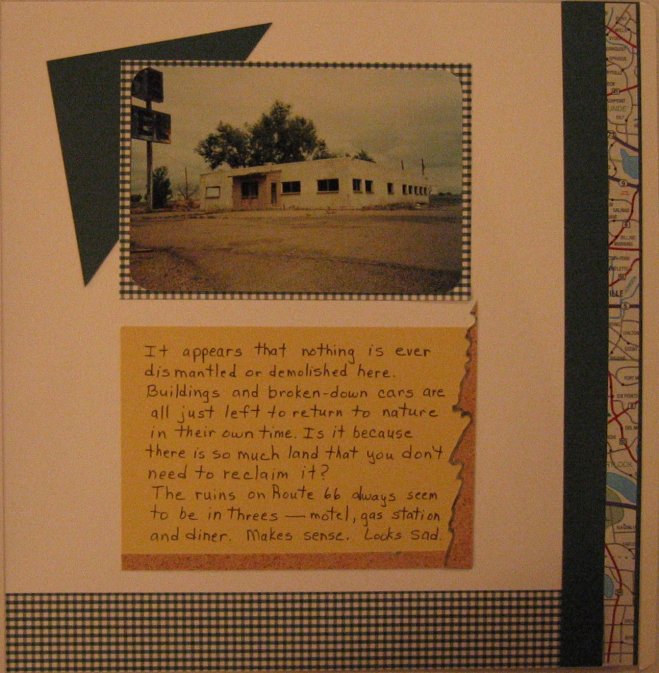 It appears that nothing is ever
dismantled or demolished here.
Buildings and broken-down cars are
all just left to return to nature
in their own time. Is it because
there is so much land that you don't
need to reclaim it?
The ruins on Route 66 always seem
to be in threes — motel, gas station
and diner. Makes sense. Looks sad.